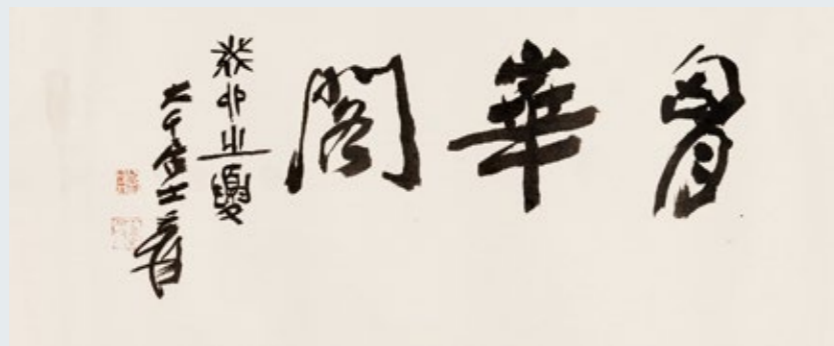 華閣
癸卯之夏
大千居士爰